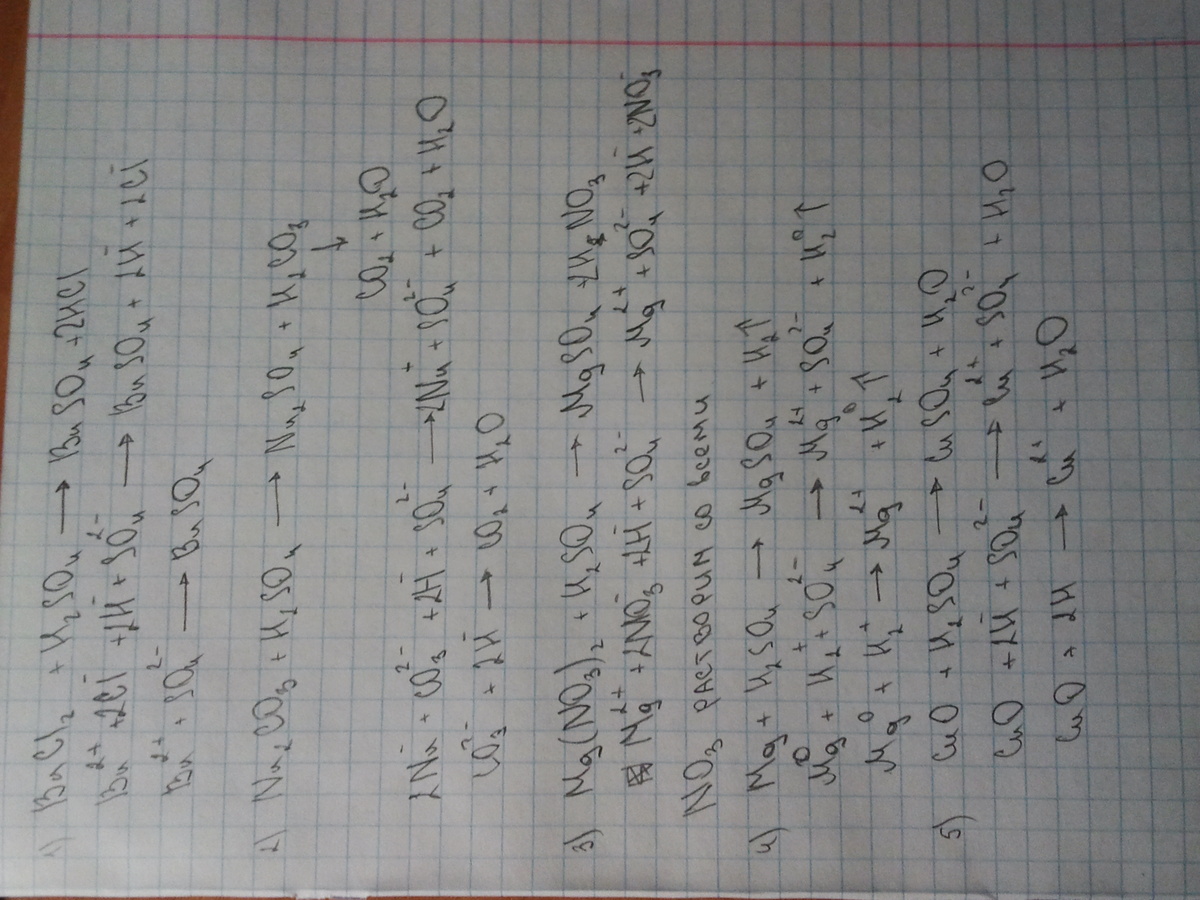 1) BaCl₂ + H₂SO₄ → BaSO₄ + 2HCl
Ba²⁺ + 2Cl⁻ + 2H⁻ + SO₄²⁻ → BaSO₄ + 2H⁻ + 2Cl⁻
Ba²⁺ + SO₄²⁻ → BaSO₄
2) Na₂CO₃ + H₂SO₄ → Na₂SO₄ + H₂CO₃
↓
CO₂ + H₂O
2Na⁻ + CO₃²⁻ + 2H⁻ + SO₄²⁻ → 2Na⁺ + SO₄²⁻ + CO₂ + H₂O
CO₃²⁻ + 2H⁻ → CO₂ + H₂O
3) Mg(NO₃)₂ + H₂SO₄ → MgSO₄ + 2HNO₃
Mg²⁺ + 2NO₃⁻ + 2H⁻ + SO₄²⁻ → Mg²⁺ + SO₄²⁻ + 2H⁻ + 2NO₃⁻
NO₃ растворим со всеми
4) Mg + H₂SO₄ → MgSO₄ + H₂↑
Mg⁰ + H₂⁺ + SO₄²⁻ → Mg²⁺ + SO₄²⁻ + H₂⁰↑
Mg⁰ + H₂⁺ → Mg²⁺ + H₂⁰↑
5) CuO + H₂SO₄ → CuSO₄ + H₂O
CuO + 2H⁻ + SO₄²⁻ → Cu²⁺ + SO₄²⁻ + H₂O
CuO + 2H⁻ → Cu²⁺ + H₂O